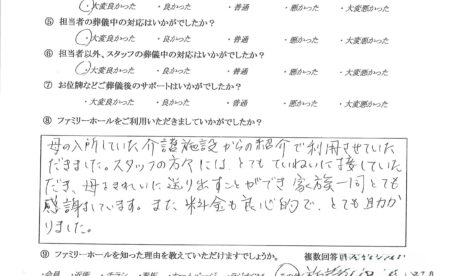 ・大変良かった ・良かった ・普通 ・悪かった ・大変悪かった
⑤ 担当者の葬儀中の対応はいかがでしたか？
・大変良かった ・良かった ・普通 ・悪かった ・大変悪かった
⑥ 担当者以外、スタッフの葬儀中の対応はいかがでしたか？
・大変良かった ・良かった ・普通 ・悪かった ・大変悪かった
⑦ お位牌などご葬儀後のサポートはいかがでしたか？
・大変良かった ・良かった ・普通 ・悪かった ・大変悪かった
⑧ ファミリーホールをご利用いただきましていかがでしたか？
母の入所していた介護施設からの紹介で利用させていた
だきました。スタッフの方々には、とてもていねいに接していた
だき、母をきれいに送り出すことができ家族一同とても
感謝しています。また、料金も良心的で、とても助か
りました。
⑨ ファミリーホールを知った理由を教えていただけますでしょうか。 複数回答